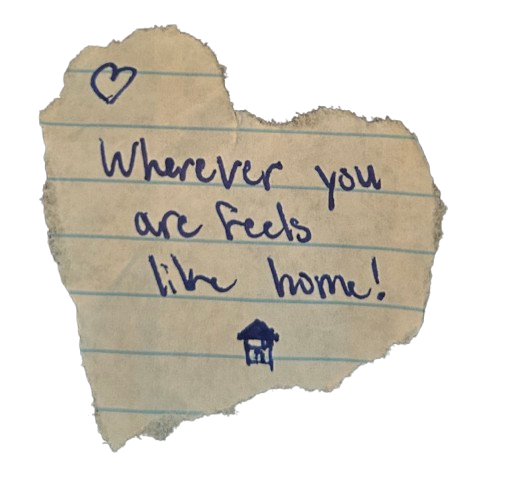 Wherever you
are feels
like home!